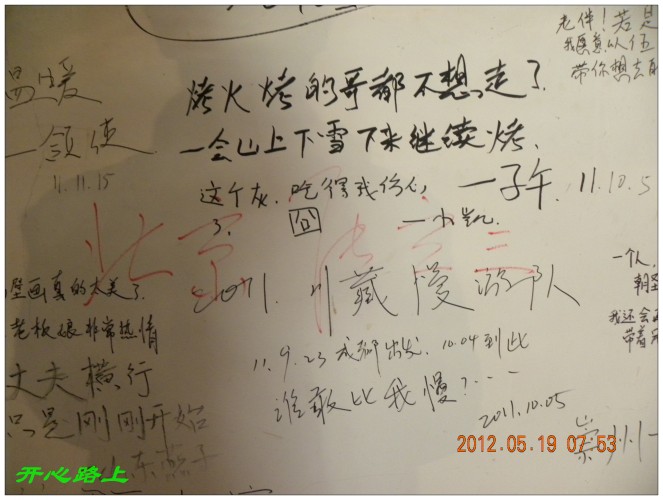 老伴！若是
我愿真以伍
带你想去
温暖
一领使
11.11.15
烤火烤的哥都不想走了.
一会山上下雪下来继续烤.
这个灰.吃得我伤心
了. 囧 一小凯.
一子午. 11.10.5
北京
2011.川藏慢游队
11.9.23成都出发. 10.04到此
谁敢比我慢?...
2011.10.05
一个人,
朝圣
我还会再
带着
壁画真的太美了.
老板娘非常热情
丈夫横行
只是刚刚开始
山东燕子
崇州
2012.05.19 07:53
开心路上